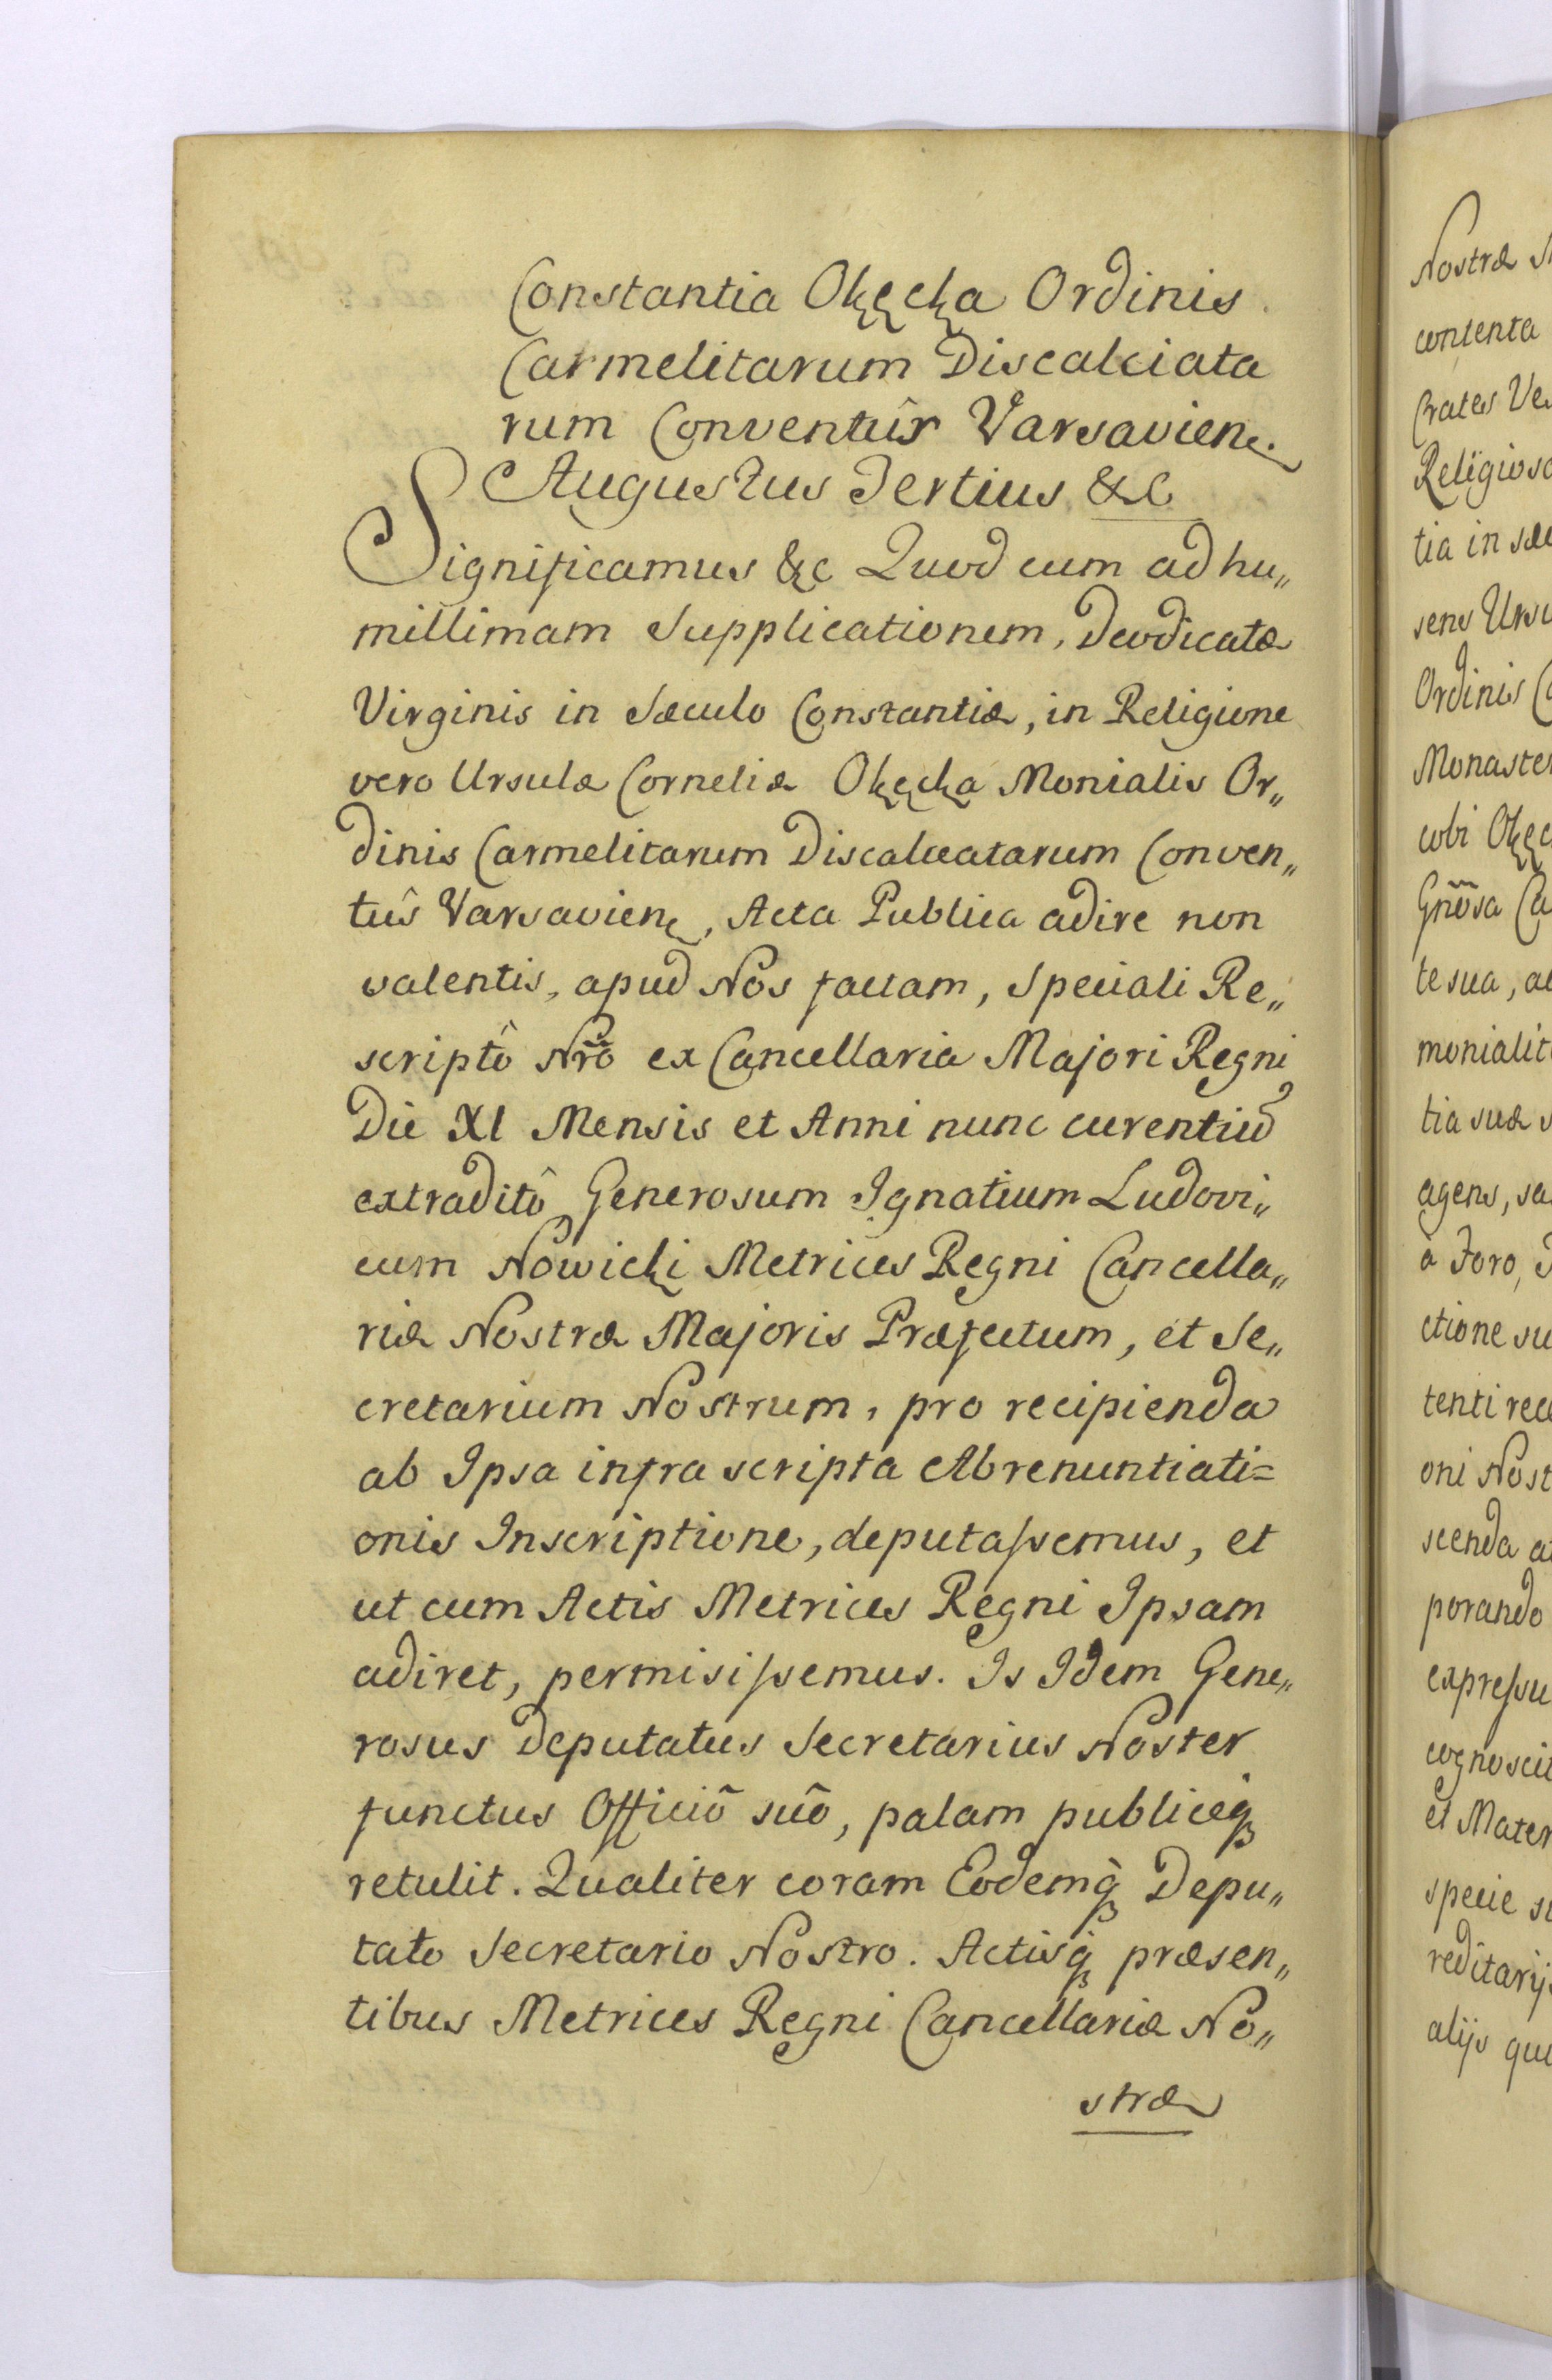 Constantia Okęcka Ordinis
Carmelitarum Discalciata
rum Conventûs Varsavien.
Augustus Tertius &c
Significamus &c Quod cum ad hu„
millimam Supplicationem, Deodicatæ
Virginis in Sæculo Constantiæ, in Religione
vero Ursulæ Corneliæ Okęcka Monialis Or„
dinis Carmelitarum Discalceatarum Conven„
tûs Varsavien, Acta Publica adire non
valentis, apud Nos factam, Speciali Re„
scriptô Nrõ ex Cancellaria Majori Regni
Die XI Mensis et Anni nunc curentium
extraditô Generosum Ignatium Ludovi„
cum Nowicki Metrices Regni Cancella„
riæ Nostræ Majoris Præfectum, et Se„
cretarium Nostrum, pro recipienda
ab Ipsa infra scripta Abrenuntiati=
onis Inscriptione, deputassemus, et
ut cum Actis Metrices Regni Ipsam
adiret, permisissemus. Is Idem Gene„
rosus Deputatus Secretarius Noster
functus Officiô suô, palam publiceq
retulit. Qualiter coram Eodemq Depu„
tato Secretario Nostro. Actisq præsen„
tibus Metrices Regni Cancellariæ No„
stræ
Nostræ
contenta
Crates
Religiosa
tia in
sens
Ordinis
Monaster
cobi
Gnõsa
te sua,
monialit
tia suæ
agens,
à Foro,
ctione
tenti
oni Nost
scenda
porando
expressu
cognoscit
et Mater
specie
reditarijs
alijs